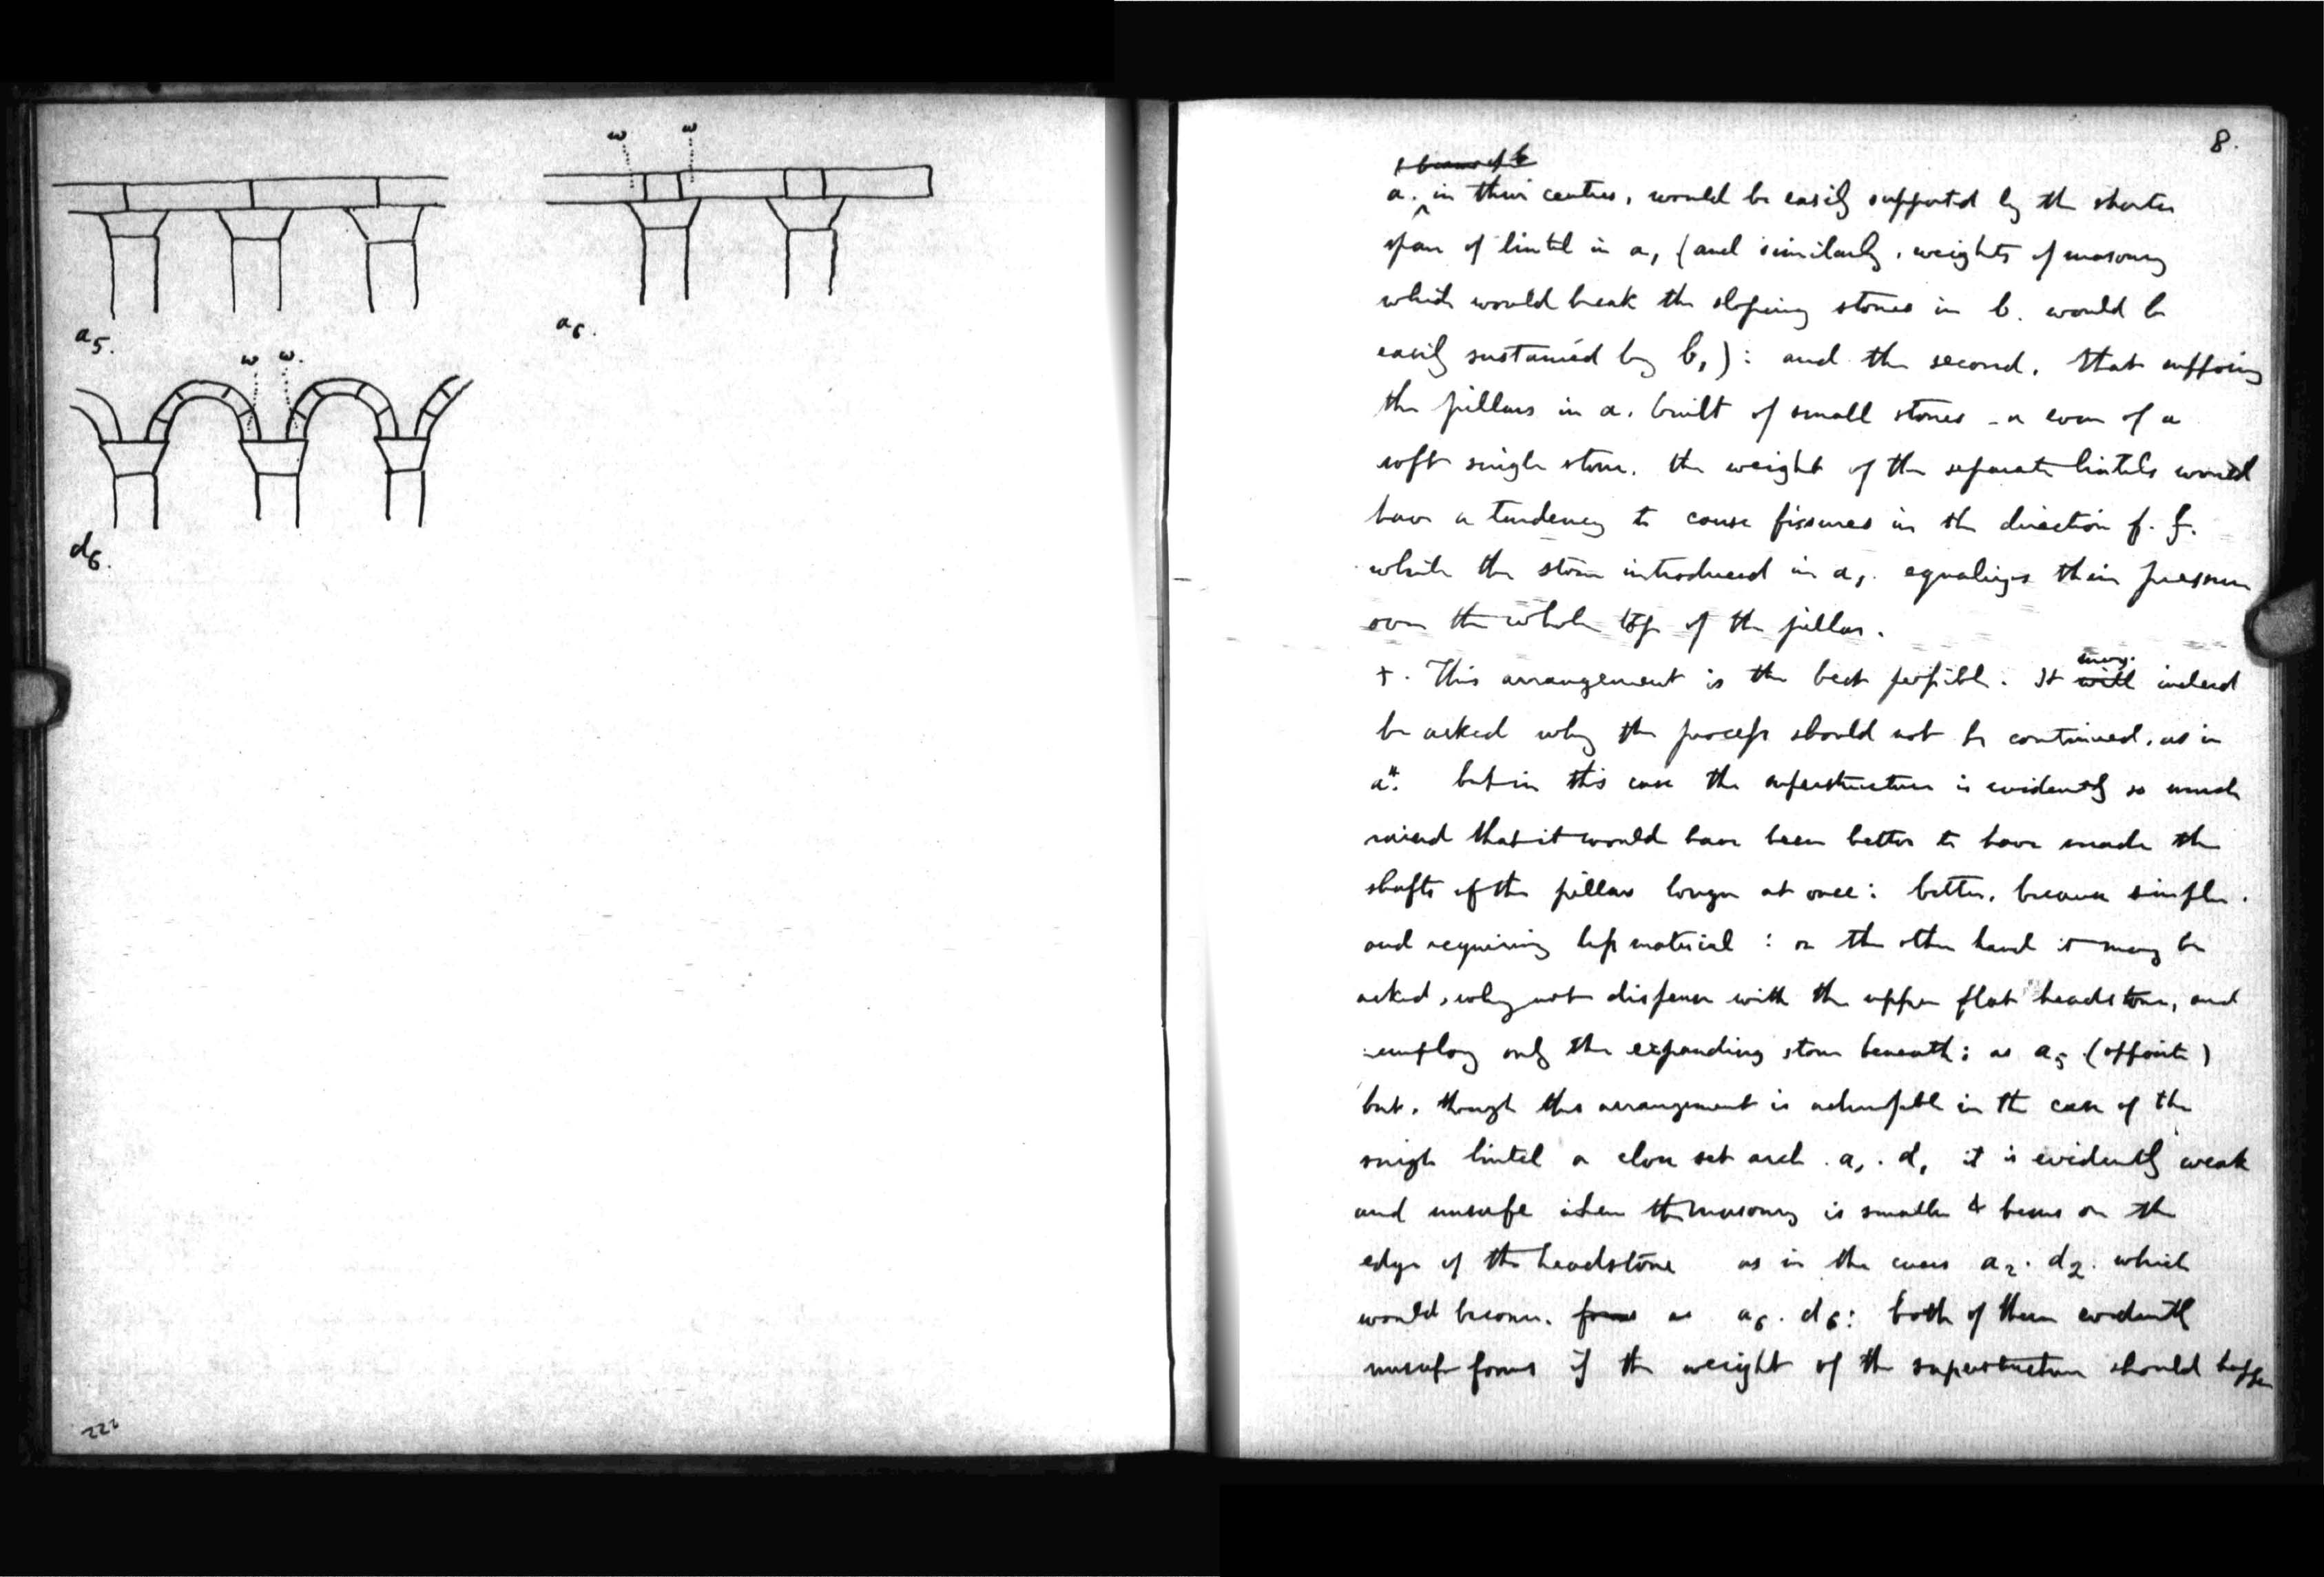 ω ω
a5. a6.
ω ω.
d6.
222
8.
a. in their centres, would be easily supported by the shorter
span of lintel in a, (and similarly, weights of masonry
which would break the sloping stones in b. would be
easily sustained by b,) : and the second, that supposing
the pillars in a. built of small stones - or even of a
soft single stone. the weight of the separate lintels would
have a tendency to cause fissures in the direction f. f.
while the stone introduced in a,. equalizes their pressure
over the whole top of the pillar.
+. This arrangement is the best possible. It will may. indeed
be asked why the process should not be continued, as in
a". but in this case the superstructure is evidently so much
raised that it would have been better to have made the
shafts of the pillars longer at once: better, because simpler.
and requiring less material : on the other hand it may be
asked, why not dispense with the upper flat headstone, and
employ only the expanding stone beneath; as a5 (opposite)
but, though this arrangement is admissible in the case of the
single lintel or close set arch. a,. d, it is evidently weak
and unsafe when the masonry is smaller & bears on the
edge of the headstone as in the cases a2. d2. which
would become. form as a6. d6: both of them evidently
unsafe forms if the weight of the superstructure should happen